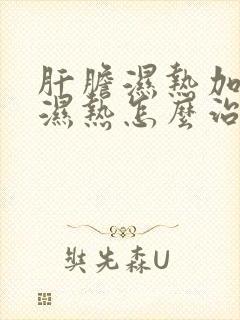 肝膽濕熱加
濕熱怎麼治
奘先森U